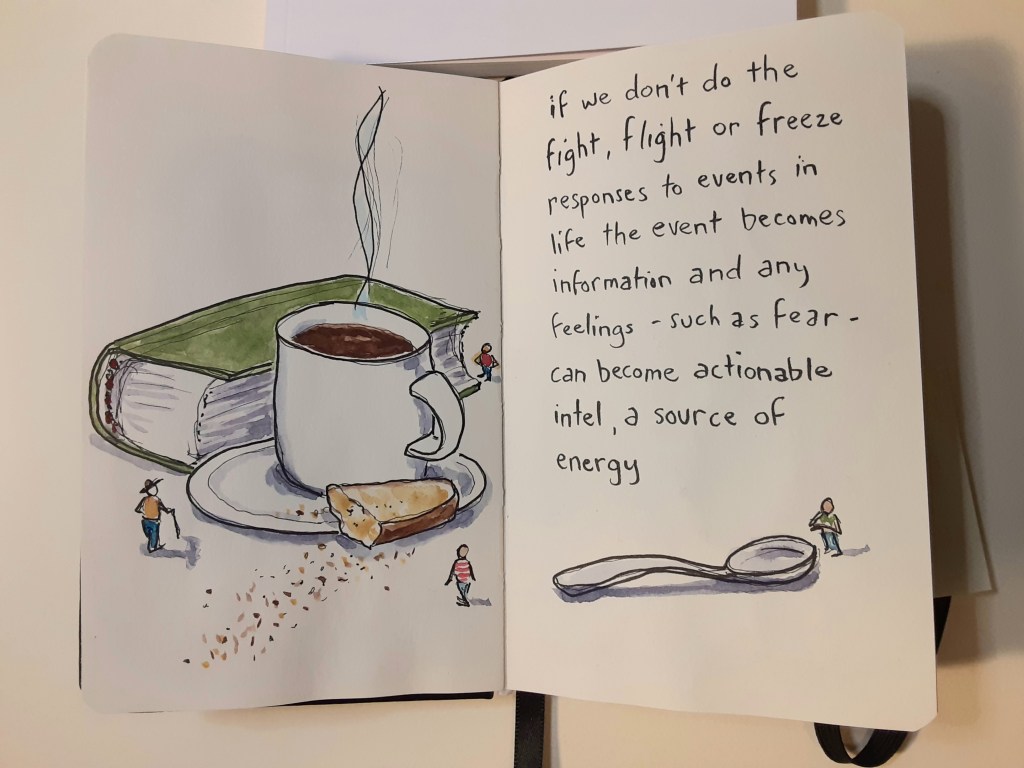 if we don't do the
fight, flight or freeze
responses to events in
life the event becomes
information and any
feelings - such as fear -
can become actionable
intel, a source of
energy